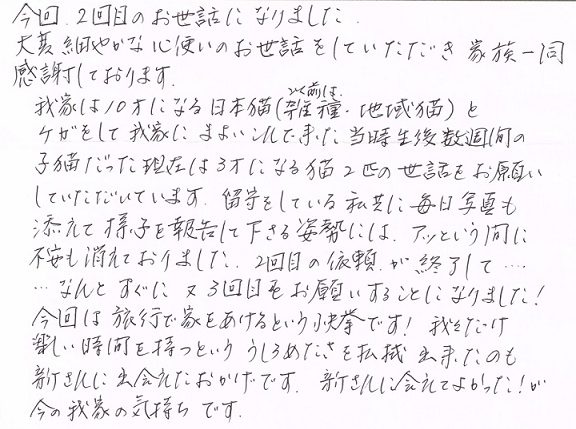 今回、2回目のお世話になりました。
大変細やかな心使いのお世話をしていただき 家族一同
感謝しております。
我家は10才になる日本猫(雑種・地域猫)と
ケガをして我家にまよいこんで来た当時生後数週間の
子猫だった現在は3才になる猫2匹の世話をお願い
していただいています。留守をしている私共に毎日写真も
添えて様子を報告して下さる姿勢には、アッという間に
不安も消えておりました。2回目の依頼が終了して‥‥
‥なんとすぐに又3回目をお願いすることになりました!
今回は旅行で家をあけるという快挙です! 我々だけ
楽しい時間を持つという うしろめたさを払拭出来たのも
新さんに出会えたおかげです。新さんに会えてよかった!が
今の我家の気持ちです。